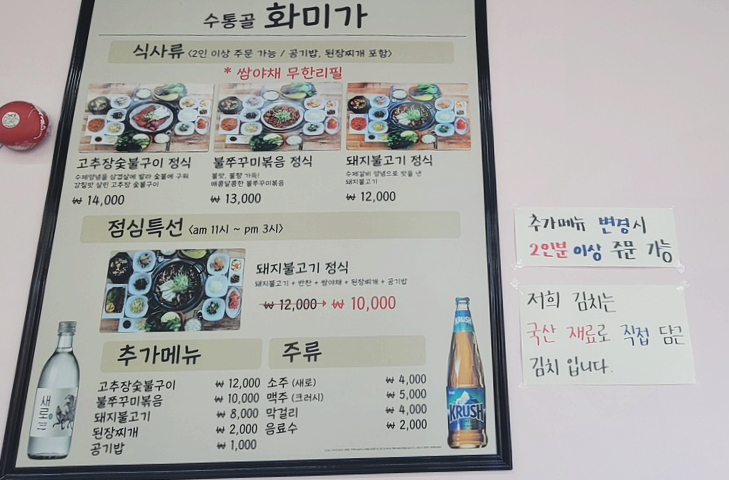 수통골 화미가
식사류 <2인 이상 주문 가능 / 공기밥, 된장찌개 포함>
* 쌈야채 무한리필
고추장숯불구이 정식
수제양념을 삼겹살에 발라 숯불에 구워
감칠맛 살린 고추장 숯불구이
₩ 14,000
불쭈꾸미볶음 정식
불맛, 불향 가득!
매콤달콤한 불쭈꾸미볶음
₩ 13,000
돼지불고기 정식
수제갈비 양념으로 맛을 낸
돼지불고기
₩ 12,000
점심특선 <am 11시 ~ pm 3시>
돼지불고기 정식
돼지불고기 + 반찬 + 쌈야채 + 된장찌개 + 공기밥
₩ 12,000 → ₩ 10,000
추가메뉴
고추장숯불구이 ₩ 12,000
불쭈꾸미볶음 ₩ 10,000
돼지불고기 ₩ 8,000
된장찌개 ₩ 2,000
공기밥 ₩ 1,000
주류
소주 (새로) ₩ 4,000
맥주 (크러시) ₩ 5,000
막걸리 ₩ 4,000
음료수 ₩ 2,000
새로
KRUSH
추가메뉴 변경시
2인분 이상 주문 가능
저희 김치는
국산 재료로 직접 담근
김치 입니다.